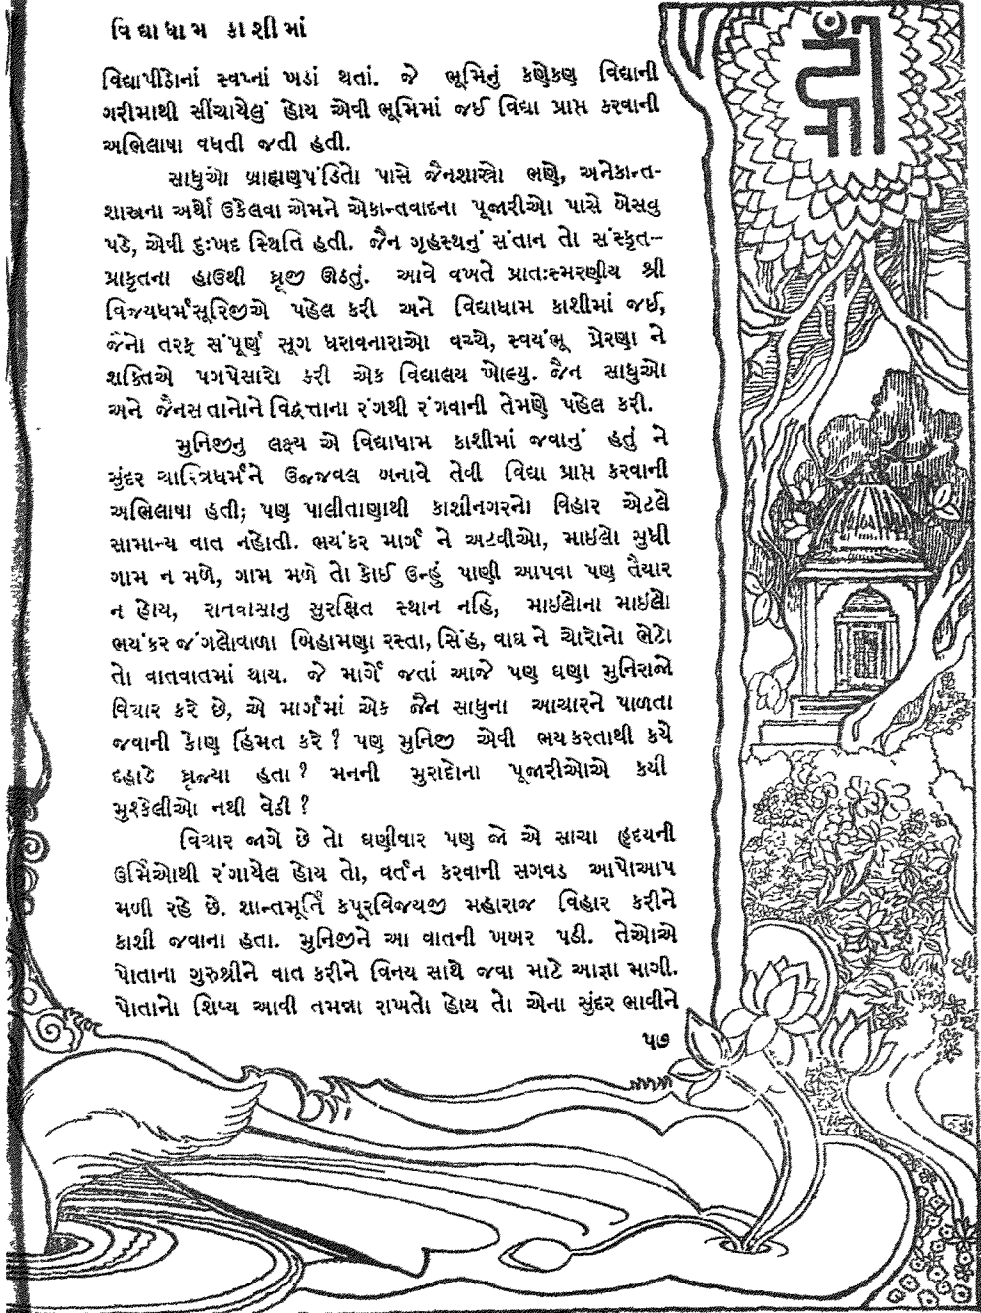 વિદ્યાધામ કાશીમાં
વિદ્યાપીઠોનાં સ્વપ્નાં ખડાં થતાં. જે ભૂમિનું કણેકણ વિદ્યાની
ગરીમાથી સીંચાયેલું હોય એવી ભૂમિમાં જઈ વિદ્યા પ્રાપ્ત કરવાની
અભિલાષા વધતી જતી હતી.
સાધુઓ બ્રાહ્મણપંડિતો પાસે જૈનશાસ્ત્રો ભણે, અનેકાન્ત-
શાસ્ત્રના અર્થો ઉકેલવા એમને એકાન્તવાદના પૂજારીઓ પાસે બેસવુ
પડે, એવી દુઃખદ સ્થિતિ હતી. જૈન ગૃહસ્થનું સંતાન તો સંસ્કૃત-
પ્રાકૃતના હાઉથી ધ્રૂજી ઊઠતું. આવે વખતે પ્રાતઃસ્મરણીય શ્રી
વિજયધર્મસૂરિજીએ પહેલ કરી અને વિદ્યાધામ કાશીમાં જઈ,
જૈનો તરફ સંપૂર્ણ સૂગ ધરાવનારાઓ વચ્ચે, સ્વયંભૂ પ્રેરણા ને
શક્તિએ પગપેસારો કરી એક વિદ્યાલય ખોલ્યુ. જૈન સાધુઓ
અને જૈનસંતાનોને વિદ્વત્તાના રંગથી રંગવાની તેમણે પહેલ કરી.
મુનિજીનુ લક્ષ્ય એ વિદ્યાધામ કાશીમાં જવાનું હતું ને
સુંદર ચારિત્રધર્મને ઉજ્જવલ બનાવે તેવી વિદ્યા પ્રાપ્ત કરવાની
અભિલાષા હતી; પણ પાલીતાણાથી કાશીનગરનો વિહાર એટલે
સામાન્ય વાત નહોતી. ભયંકર માર્ગ ને અટવીઓ, માઇલો સુધી
ગામ ન મળે, ગામ મળે તો કોઈ ઉન્હું પાણી આપવા પણ તૈયાર
ન હોય, રાતવાસાનુ સુરક્ષિત સ્થાન નહિ, માઇલોના માઇલો
ભયંકર જંગલોવાળા બિહામણા રસ્તા, સિંહ, વાઘ ને ચોરોનો ભેટો
તો વાતવાતમાં થાય. જે માર્ગે જતાં આજે પણ ઘણા મુનિરાજો
વિચાર કરે છે, એ માર્ગમાં એક જૈન સાધુના આચારને પાળતા
જવાની કોણ હિંમત કરે ? પણ મુનિજી એવી ભયંકરતાથી કયે
દહાડે ધ્રૂજ્યા હતા ? મનની મુરાદોના પૂજારીઓએ કયી
મુશ્કેલીઓ નથી વેઠી ?
વિચાર જાગે છે તો ઘણીવાર પણ જો એ સાચા હૃદયની
ઉર્મિઓથી રંગાયેલ હોય તો, વર્તન કરવાની સગવડ આપોઆપ
મળી રહે છે. શાન્તમૂર્તિ કપૂરવિજયજી મહારાજ વિહાર કરીને
કાશી જવાના હતા. મુનિજીને આ વાતની ખબર પડી. તેઓએ
પોતાના ગુરુશ્રીને વાત કરીને વિનય સાથે જવા માટે આજ્ઞા માગી.
પોતાનો શિષ્ય આવી તમન્ના રાખતો હોય તો એના સુંદર ભાવીને
૫૭